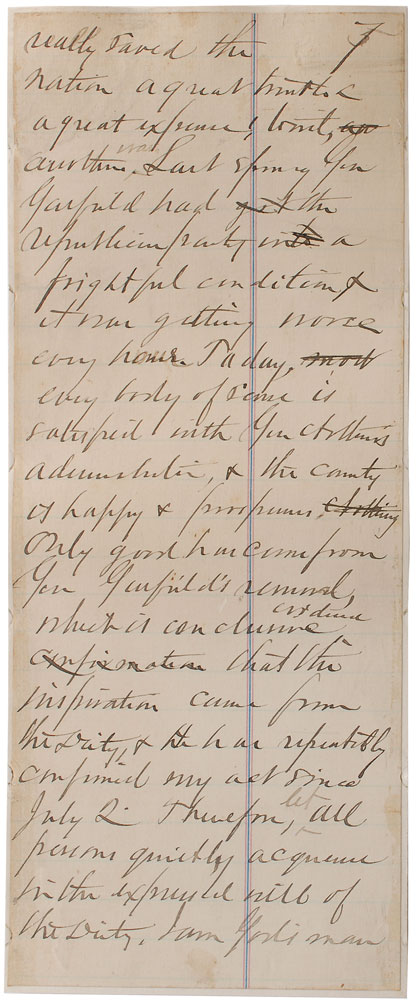 really saved the 7
nation a great trouble &
a great expense!
another. war Last spring Gen
Garfield had the
republican party in a
frightful condition &
it was getting worse
every hour. Today,
every body of sense is
satisfied with Gen Arthur's
administration, & the country
is happy & prosperous.
Only good has come from
Gen Garfield's removal,
which is conclusive evidence
confirmation that the
inspiration came from
the Deity, & He has repeatedly
confirmed my act since
July 2. Therefore, let all
persons quietly acquiesce
in the expressed will of
the Deity. I am God's man